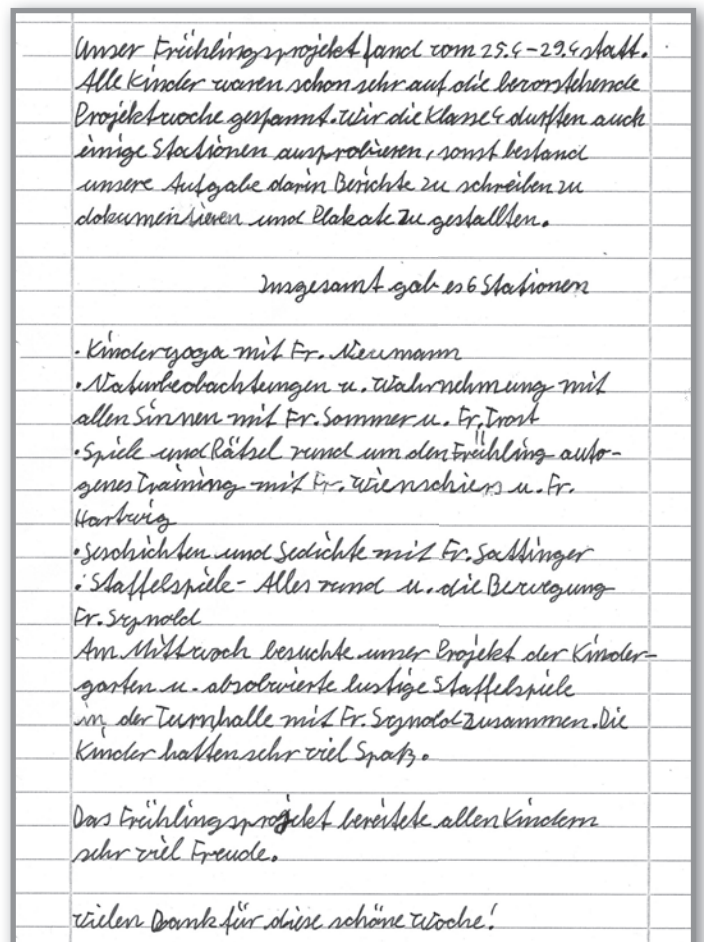 Unser Frühlingsprojekt fand vom 25.4-29.4 statt.
Alle Kinder waren schon sehr auf die bevorstehende
Projektwoche gespannt. Wir die Klasse 4 durften auch
einige Stationen ausprobieren, sonst bestand
unsere Aufgabe darin Berichte zu schreiben zu
dokumentieren und Plakate zu gestallten.
Insgesamt gab es 6 Stationen
• Kinderyoga mit Fr. Neumann
• Naturbeobachtungen u. Wahrnehmung mit
allen Sinnen mit Fr. Sommer u. Fr. Trost
• Spiele und Rätsel rund um den Frühling auto-
genes Training mit Fr. Wienschiers u. Fr.
Hartwig
• Geschichten und Gedichte mit Fr. Gattinger
• Staffelspiele - Alles rund u. die Bewegung
Fr. Sygnold
Am Mittwoch besuchte unser Projekt der Kinder-
garten u. absolvierte lustige Staffelspiele
in der Turnhalle mit Fr. Sygnold zusammen. Die
Kinder hatten sehr viel Spaß.
Das Frühlingsprojekt bereitete allen Kindern
sehr viel Freude.
Vielen Dank für diese schöne Woche!